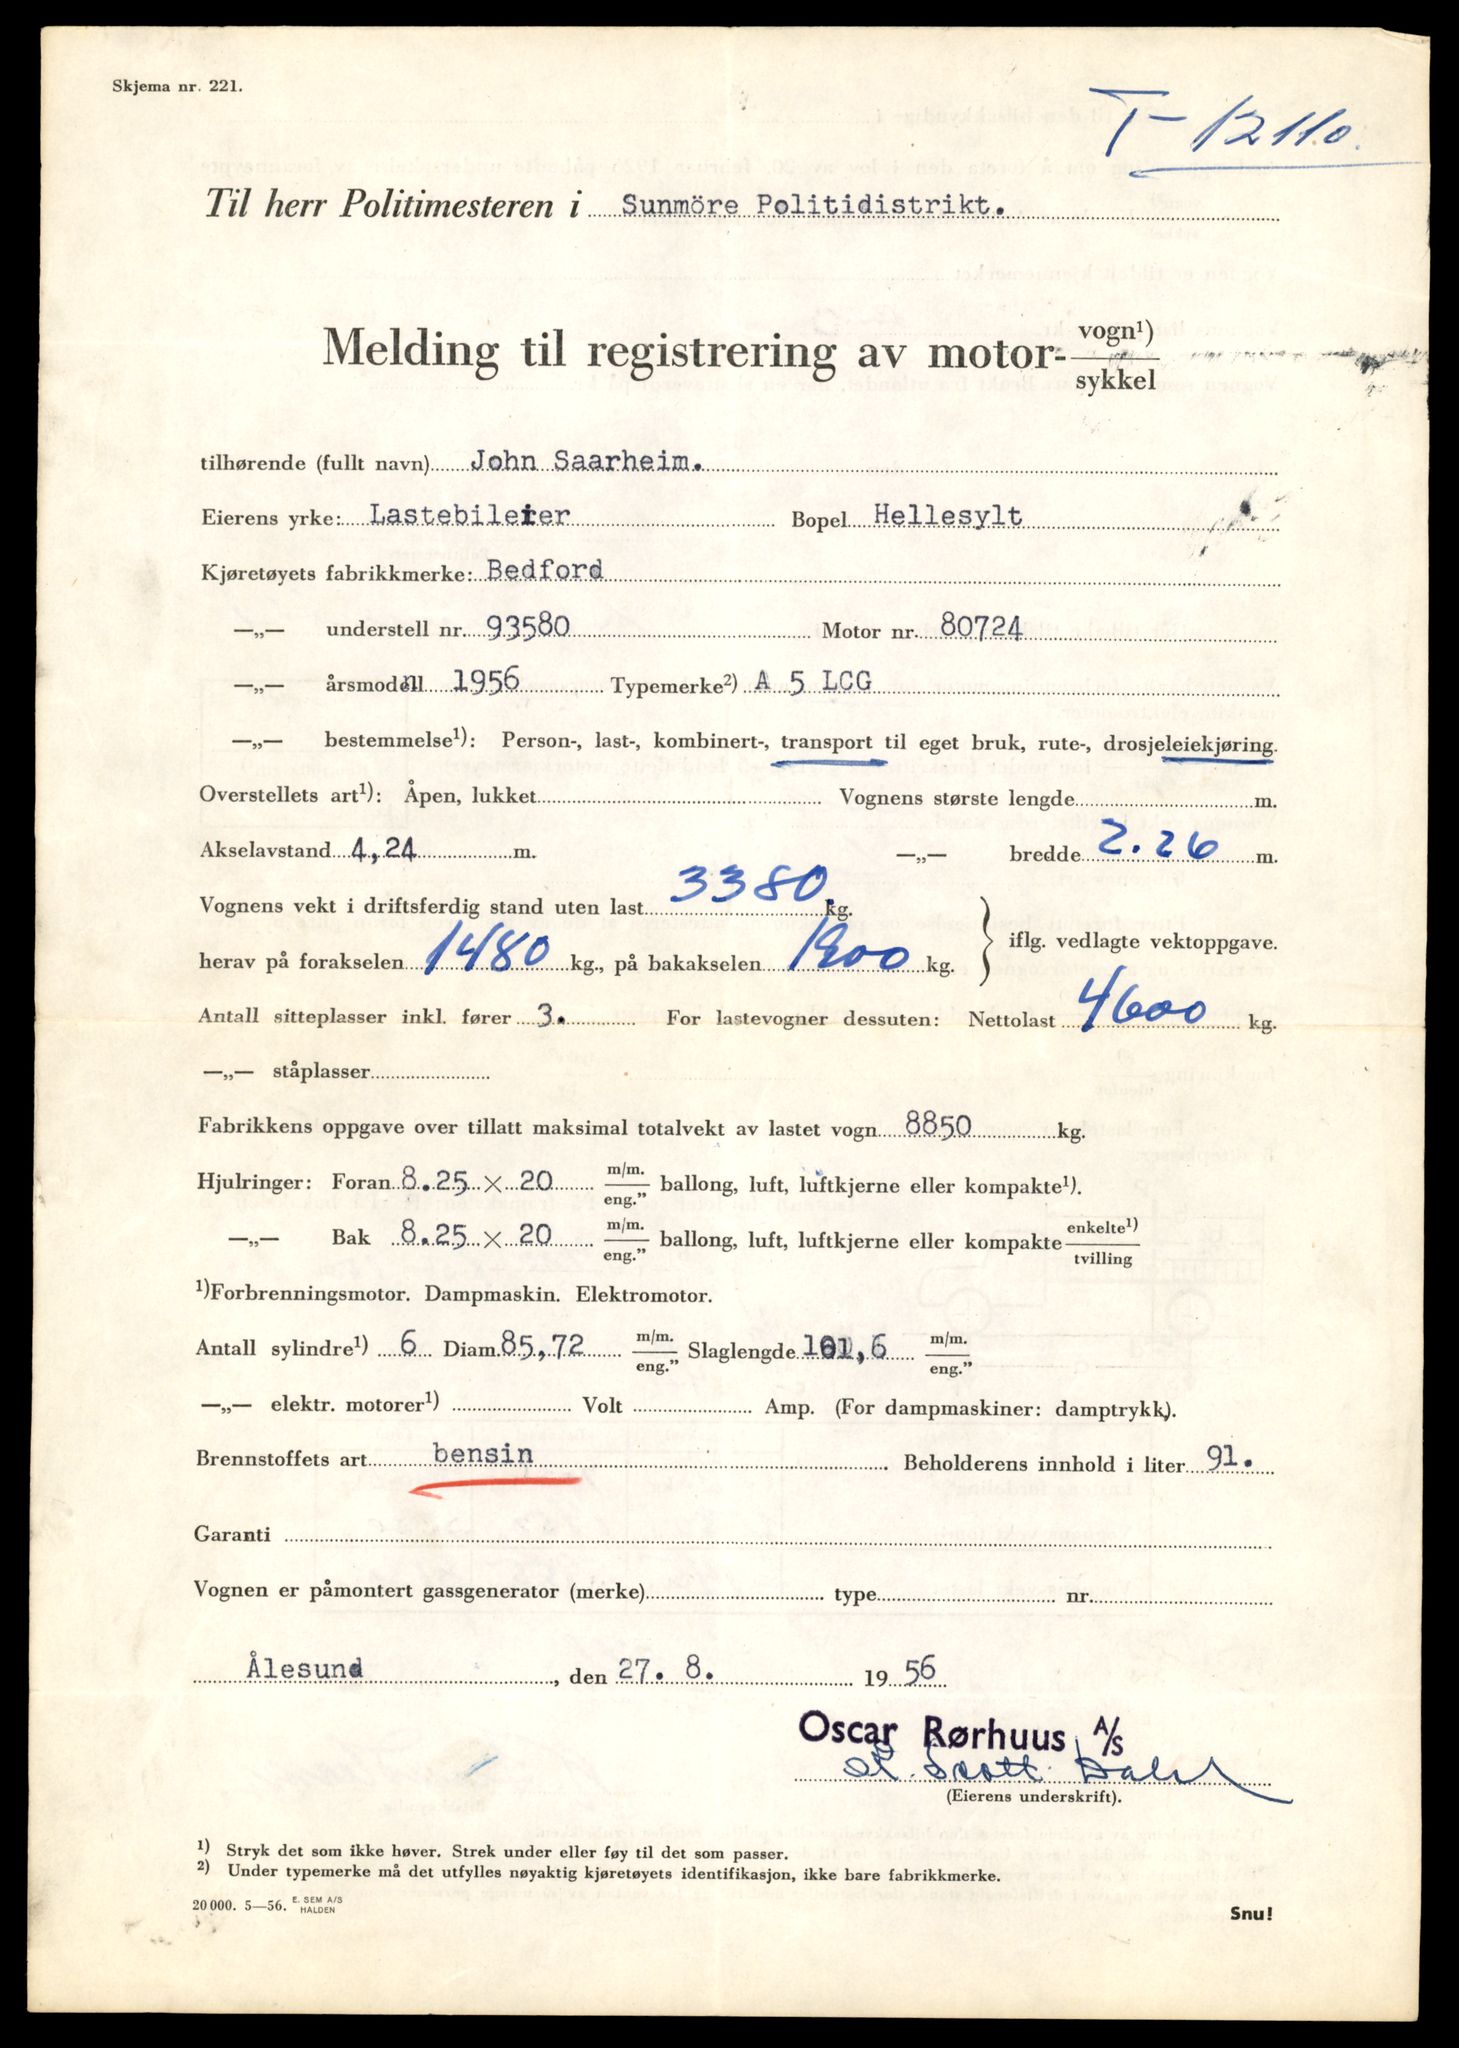 Skjema nr. 221.
T-12110.
Til herr Politimesteren i Sunmöre Politidistrikt.
Melding til registrering av motor- vogn¹) / sykkel
tilhørende (fullt navn) John Saarheim.
Eierens yrke: Lastebileier Bopel Hellesylt
Kjøretøyets fabrikkmerke: Bedford
—„— understell nr. 93580 Motor nr. 80724
—„— årsmodell 1956 Typemerke²) A 5 LCG
—„— bestemmelse¹): Person-, last-, kombinert-, transport til eget bruk, rute-, drosjeleiekjøring.
Overstellets art¹): Åpen, lukket Vognens største lengde m.
Akselavstand 4,24 m. —„— bredde 2.26 m.
Vognens vekt i driftsferdig stand uten last 3380 kg.
herav på forakselen 1480 kg., på bakakselen 1900 kg. } iflg. vedlagte vektoppgave.
Antall sitteplasser inkl. fører 3. For lastevogner dessuten: Nettolast 4600 kg.
—„— ståplasser
Fabrikkens oppgave over tillatt maksimal totalvekt av lastet vogn 8850 kg.
Hjulringer: Foran 8.25 × 20 m/m. / eng.” ballong, luft, luftkjerne eller kompakte¹).
—„— Bak 8.25 × 20 m/m. / eng.” ballong, luft, luftkjerne eller kompakte enkelte¹) / tvilling
¹)Forbrenningsmotor. Dampmaskin. Elektromotor.
Antall sylindre¹) 6 Diam. 85,72 m/m. / eng.” Slaglengde 101,6 m/m. / eng.”
—„— elektr. motorer¹) Volt Amp. (For dampmaskiner: damptrykk).
Brennstoffets art bensin Beholderens innhold i liter 91.
Garanti
Vognen er påmontert gassgenerator (merke) type nr.
Ålesund, den 27. 8. 1956
Oscar Rørhuus A/S
Scott Dahl
(Eierens underskrift).
¹) Stryk det som ikke høver. Strek under eller føy til det som passer.
²) Under typemerke må det utfylles nøyaktig kjøretøyets identifikasjon, ikke bare fabrikkmerke.
20 000. 5—56. E. SEM A/S HALDEN
Snu!